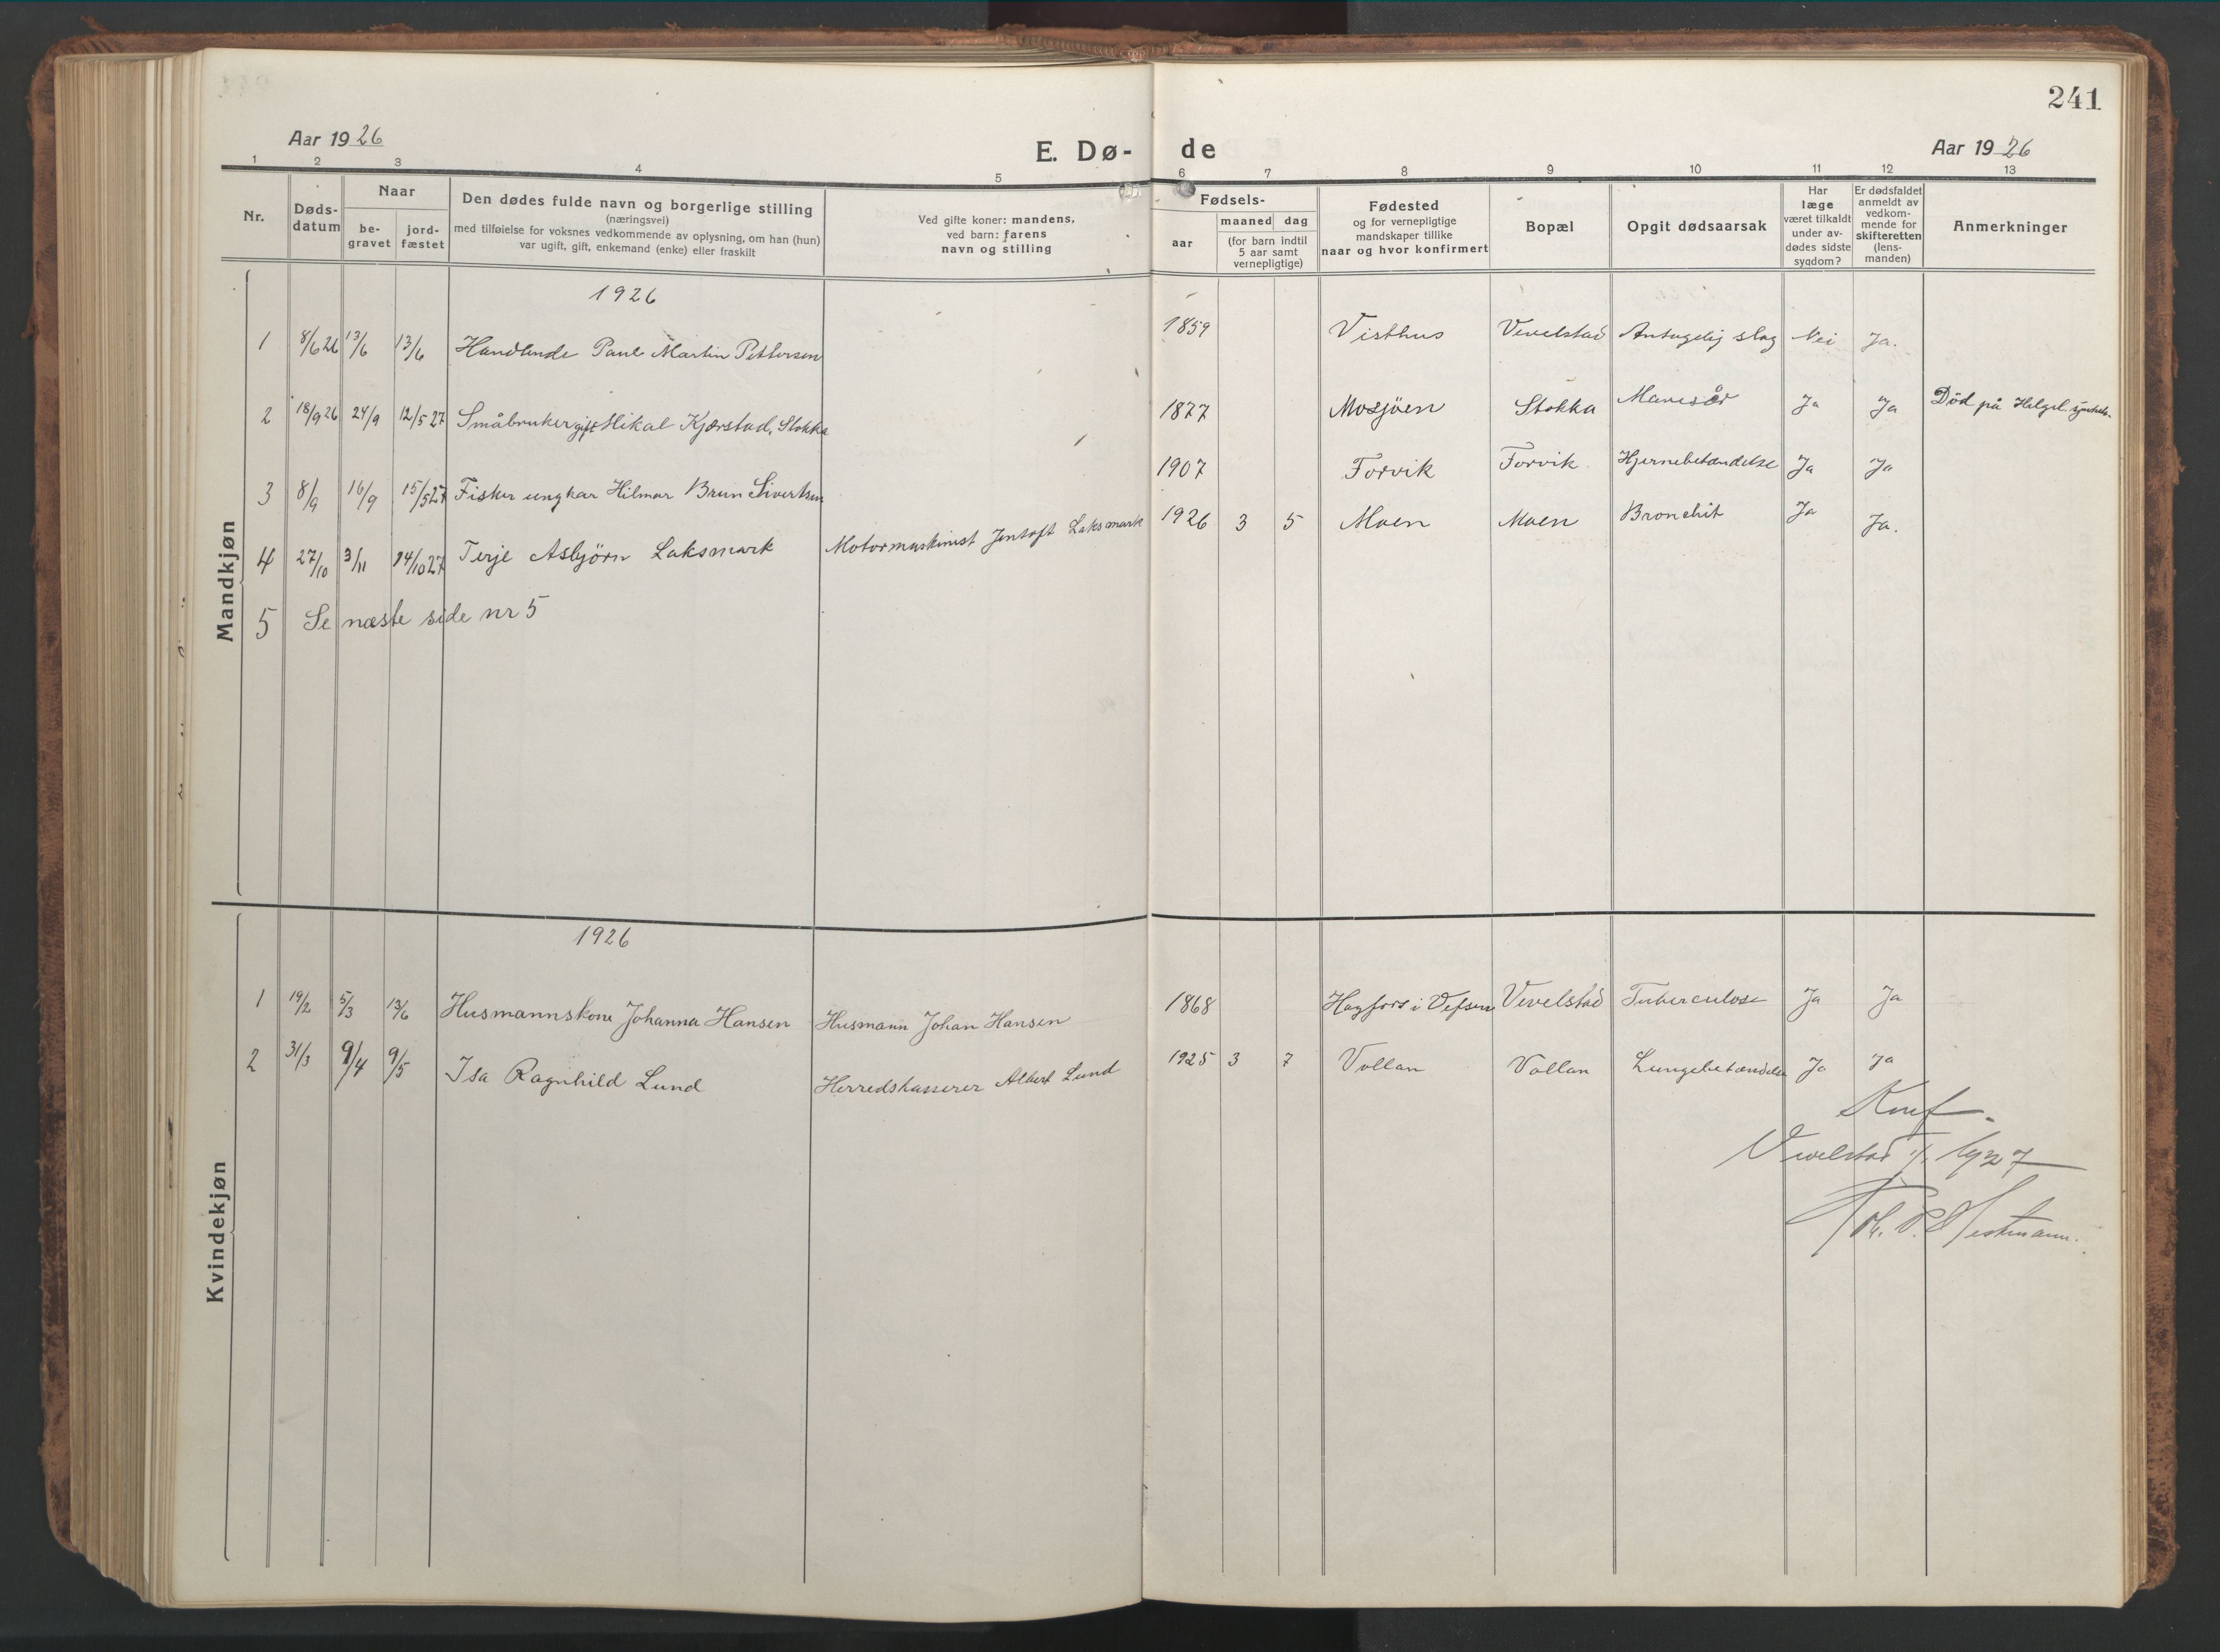 241
Aar 1926
E. Dø-
de
Aar 1926
1 2 3 4 5 6 7 8 9 10 11 12 13
Nr.
Døds-
datum
Naar
be-
gravet
jord-
fæstet
Den dødes fulde navn og borgerlige stilling
(næringsvei)
med tilføielse for voksnes vedkommende av oplysning, om han (hun)
var ugift, gift, enkemand (enke) eller fraskilt
Ved gifte koner: mandens,
ved barn: farens
navn og stilling
Fødsels-
aar
maaned dag
(for barn indtil
5 aar samt
vernepligtige)
Fødested
og for vernepligtige
mandskaper tillike
naar og hvor konfirmert
Bopæl
Opgit dødsaarsak
Har
læge
været tilkaldt
under av-
dødes sidste
sygdom?
Er dødsfaldet
anmeldt av
vedkom-
mende for
skifteretten
(lens-
manden)
Anmerkninger
Mandkjøn
1926
1 8/6 26 13/6 13/6 Handlende Paul Martin Pettersen 1859 Visthus Vevelstad Antagelig slag Nei Ja.
2 18/9 26 24/9 12/5 27 Småbruker gift Mikal Kjærstad, Stokka 1877 Mosjöen Stokka Mavesår Ja Ja Död på Helgel. sjukeh.
3 8/9 16/9 15/5 27 Fisker ungkar Hilmar Brun Sivertsen 1907 Forvik Forvik Hjernebetændelse Ja Ja
4 27/10 3/11 14/10 27 Terje Asbjörn Laksmark Motormaskinist Jentoft Laksmark 1926 3 5 Moen Moen Bronchit Ja Ja.
5 Se næste side nr 5
Kvindekjøn
1926
1 19/2 5/3 13/6 Husmannskone Johanna Hansen Husmann Johan Hansen 1868 Hagfors i Vefsen Vevelstad Tuberculose Ja Ja
2 31/3 9/4 9/5 Isa Ragnhild Lund Herredskasserer Albert Lund 1925 3 7 Vollan Vollan Lungebetændelse Ja Ja
Konf.
Vevelstad 1/1 1927
Joh. P. Hestmann.